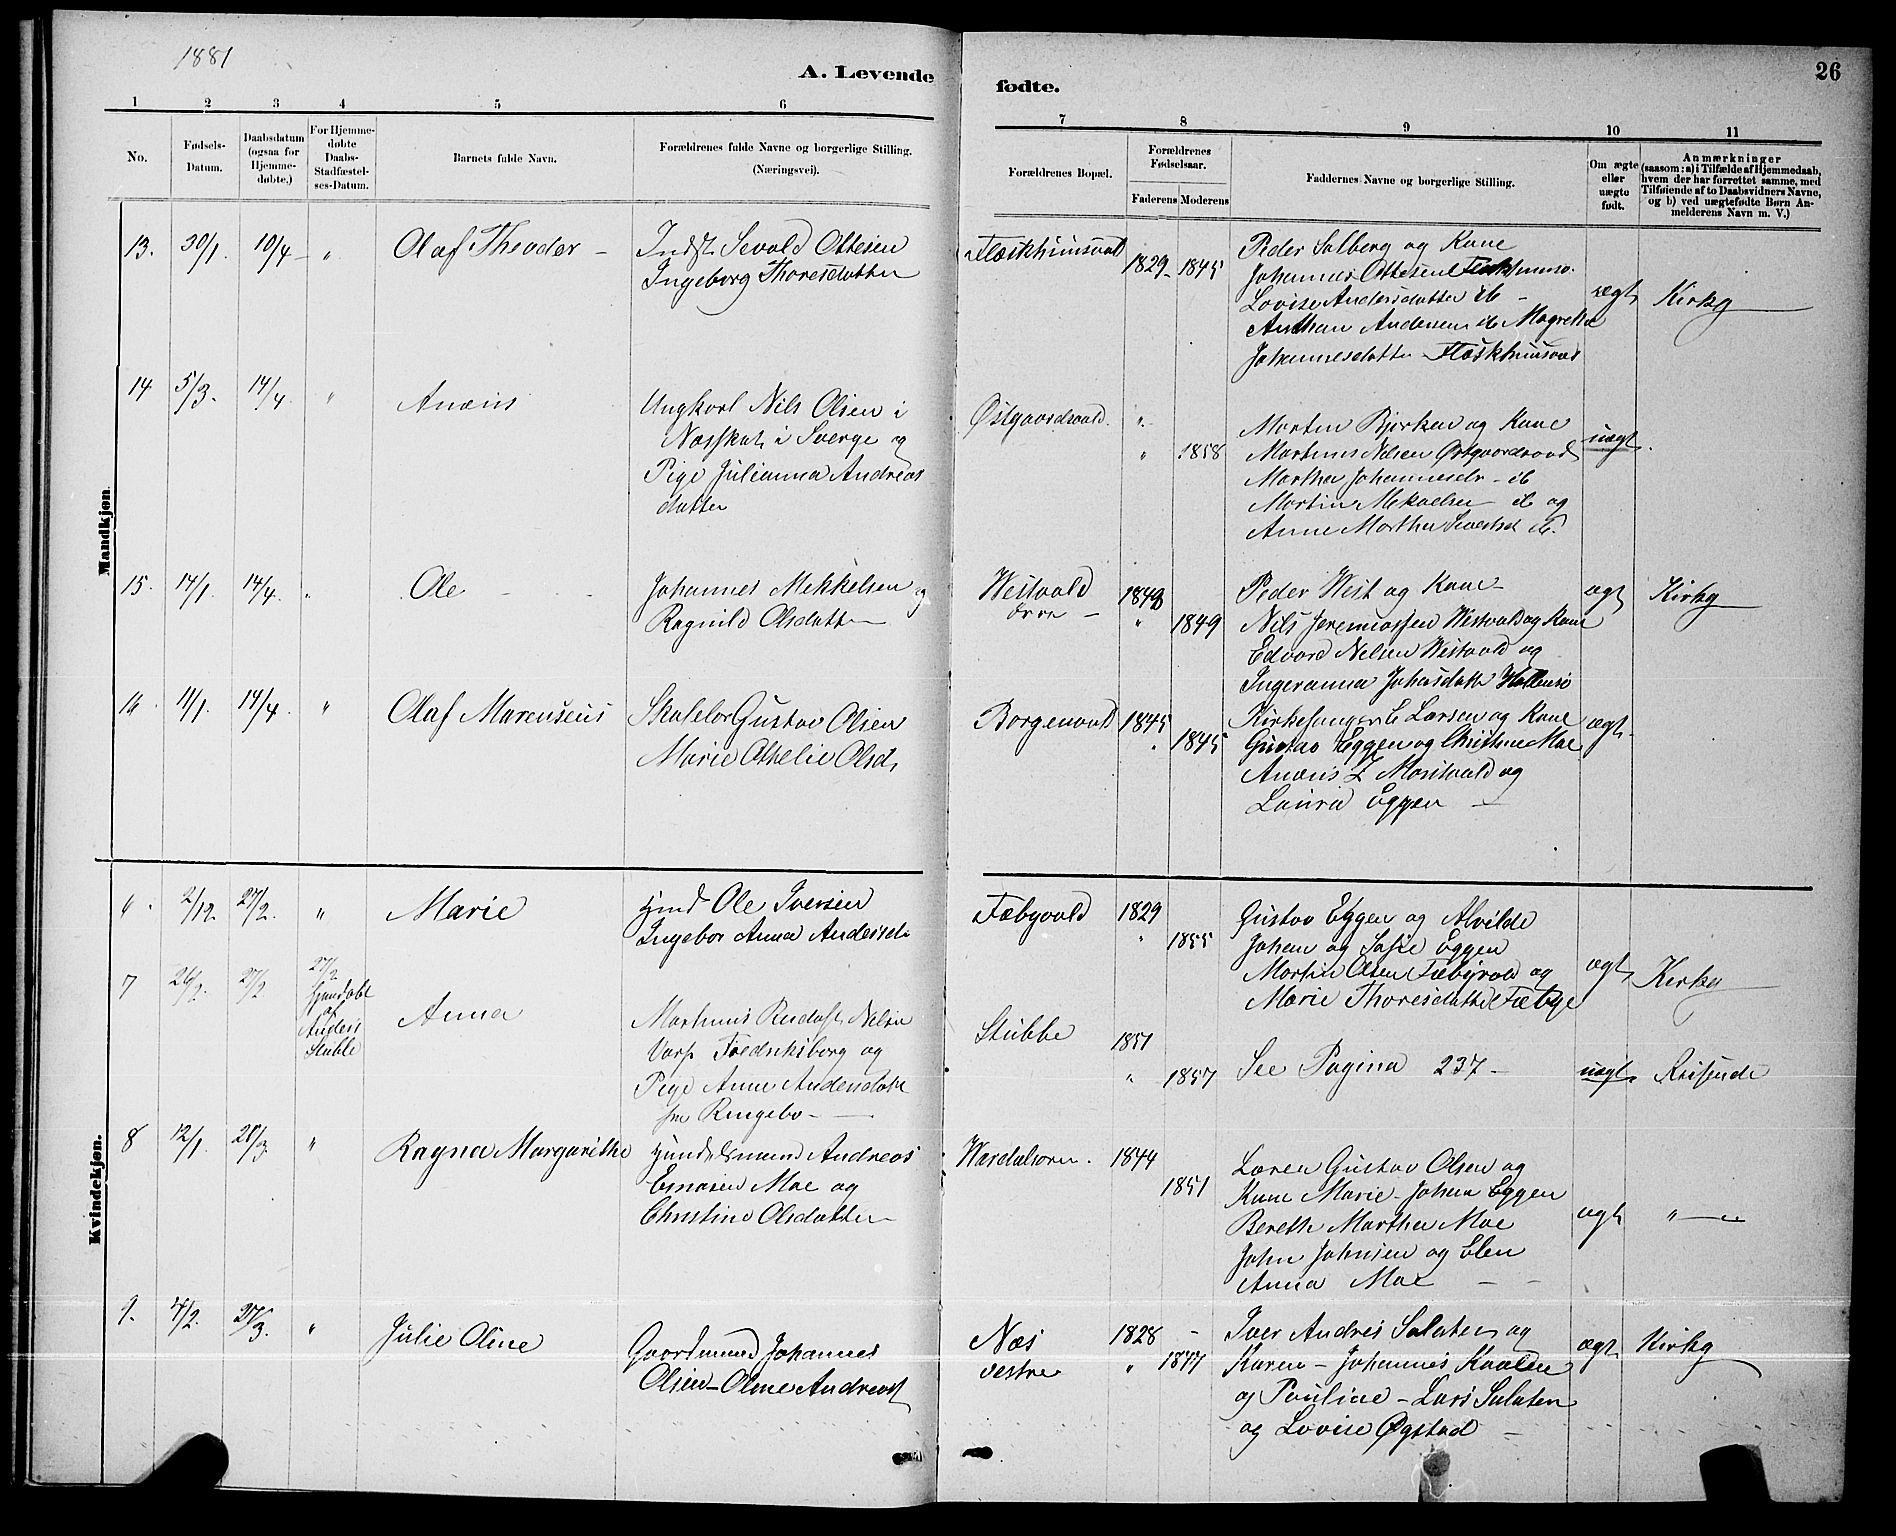 1881
A. Levende
fødte.
26
1
2
3
4
5
6
7
8
9
10
11
No.
Fødsels-
Datum.
Daabsdatum
(ogsaa for
Hjemme-
døbte.)
For Hjemme-
døbte
Daabs-
Stadfæstel-
ses-Datum.
Barnets fulde Navn.
Forældrenes fulde Navne og borgerlige Stilling.
(Næringsvei).
Forældrenes Bopæl.
Forældrenes
Fødselsaar.
Faderens
Moderens
Faddernes Navne og borgerlige Stilling.
Om ægte
eller
uægte
født.
Anmærkninger
(saasom: a) i Tilfælde af Hjemmedaab,
hvem der har forrettet samme, med
Tilføiende af to Daabsvidners Navne,
og b) ved uægtefødte Børn An-
melderens Navn m. V.)
Mandkjøn
13. 30/1. 10/4 - „ Olaf Theodor -
Indst Sevald Ottesen
Ingeborg Thoresdatter
1829- 1845
Peder Salberg og Kone
Johannes Ottesen
Lovise Andersdatter ib -
Andersen ib Magretha
Johannesdatter
ægt Kirke
14 5/3. 14/4. „ Anæus
Ungkarl Nils Olsen i
i Sverge og
Pige Julianna Andreas
datter
Østgaardsvald. „
„ 1858
Morten Bjerken og Kone
Martinus Nilsen Østgaardsvald
Martha Johannesdr - ib
Martin Mekaelsen - ib og
Anne Martha ib.
uægt.
15. 14/1. 14/4. „ Ole
Johannes Mekkelsen og
Ragnild Olsdatter
Westvald
øvre -
„ 1849
Peder West og Kone -
Nils Jeremiassen Westvald og Kone
Edvard Nelsen Westvald og
Ingeranna
ægt Kirke
16. 11/1. 14/4. „ Olaf Marensius
Gustav Olsen
Marie Othelie Olsd.
Borgenvald 1845
„ 1845
Kirkesanger Larsen og Kone
Gustav Eggen og Christine Moe
Anæus
Laura Eggen -
ægt.
Kvindekjøn.
2/12. 27/2. „ Marie
Ole Iversen
Anna
Fæbyvald 1829
„ 1855
Gustav Eggen og Alvilde
Johan og Sofie Eggen
Martin Olsen Fæbyvald og
Marie Thoresdatter Fæbye
ægt Kirke
7 26/2. 27/2 27/2
Hjemdøbt
af
Anders
Stubbe
Anna
Martinus Nelsen
Fredriksborg og
Pige Anne Andersdatter
fra Ringebo -
Stubbe 1851
„ 1857
See Pagina 237 -
uægt. Reisende
8 12/1. 28/3. „ Ragna Margarithe
Andreas
Moe og
Christine Olsdatter
Værdalsøren. 1844
1851
Gustav Olsen og
Kone Marie - Johan Eggen
Bereth Martha Moe
John Johnsen og Elen
Anna Moe - -
ægt „ -
9. 4/2. 27/3. „ Julie Oline
Gaardmand Johannes
Olsen - Oline
Næs
vestre
1828 -
„
Iver Andres Salater og
Karen - Johannes
og Pauline - Lars Salaten
og Lovise Øgstad -
ægt. Kirke